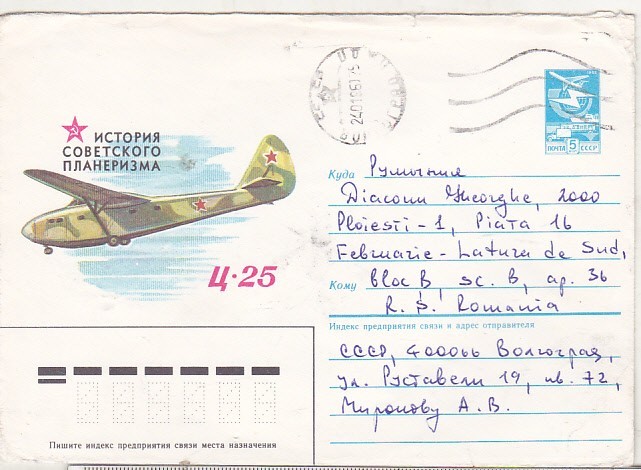 ИСТОРИЯ
СОВЕТСКОГО
ПЛАНЕРИЗМА
Ц·25
ПОЧТА 5 СССР
Куда Румыния
Diaconu Gheorghe, 2000
Ploiesti-1, Piata 16
Februarie - Latura de Sud,
Кому bloc B, sc. B, ap. 36
R. S. Romania
Индекс предприятия связи и адрес отправителя
СССР, 400066 Волгоград,
ул. Руставели 19, кв. 72,
Миронову А. В.
Пишите индекс предприятия связи места назначения